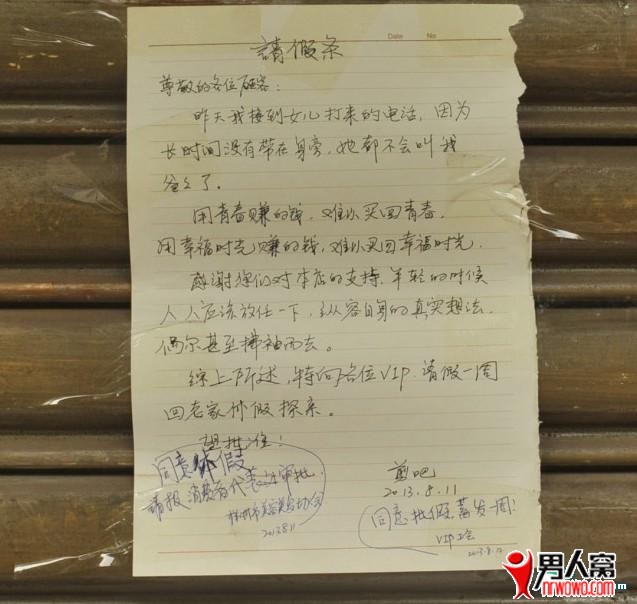 Date No
請假条
尊敬的各位顾客：
昨天我接到女儿打来的电话，因为
长时间没有带在身旁，她都不会叫我
爸爸了。
用青春赚的钱，难以买回青春。
用幸福时光赚的钱，难以买回幸福时光。
感谢你们对本店的支持，年轻的时候
人人应该放任一下，纵容自身的真实想法，
偶尔甚至拂袖而去。
综上所述，特向各位VIP请假一周
回老家休假探亲。
望批准！
同意休假
请报消费者代表处审批
2013.8.11
剪吧
2013.8.11
同意批假蓄发一周！
VIP
2013.8.12
男人窝
nrwowo.com